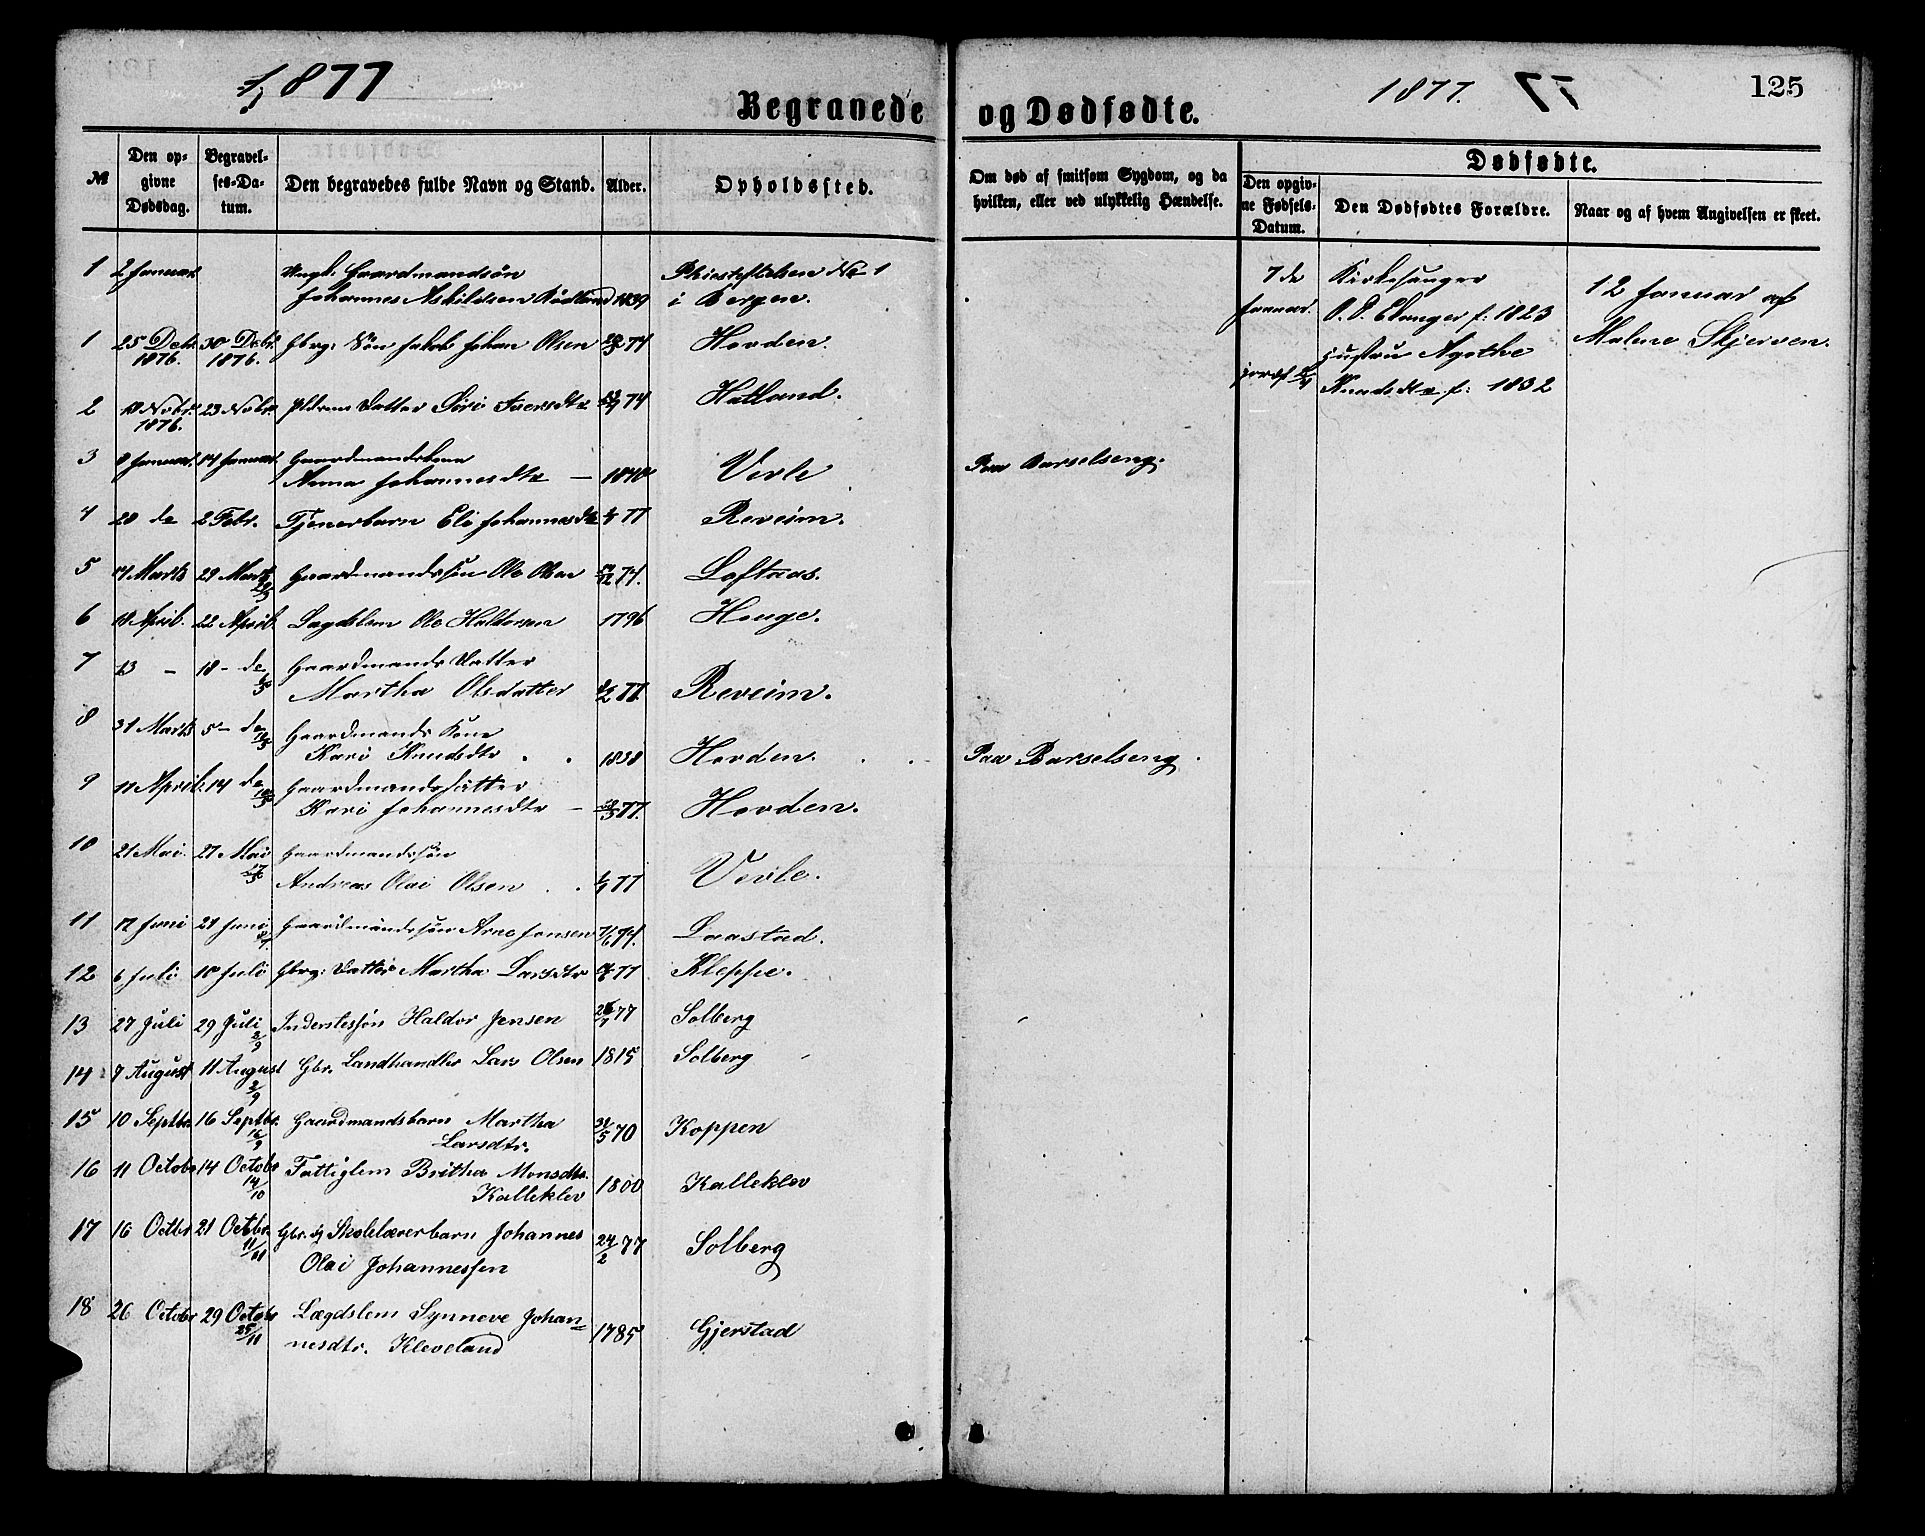 1877
Begravede og Dødfødte.
1877. 77
125
№
Den opgivne Dødsdag.
Begravelses-Datum.
Den begravedes fulde Navn og Stand.
Alder.
Opholdssted.
Om død af smitsom Sygdom, og da hvilken, eller ved ulykkelig Hændelse.
Dødfødte.
Den opgivne Fødsels-Datum.
Den Dødfødtes Forældre.
Naar og af hvem Angivelsen er skeet.
1 2 Januar Ungk. Gaardmandssøn
Johannes Askildsen 1839 i Bergen.
1 25 Decbr. 1876. 30 Decbr. 1876. Gbrg: Søn Jakob Johan Olsen 74 Hovden.
2 18 Novbr. 1876. 23 Novbr. Datter Siri Iversdtr 74 Hatland.
3 9 Januar. 14 Januar. Gaardmandskone
Anna Johannesdtr — 1840 Vevle Paa Barselseng.
4 28 de 2 Febr. Tjenerbarn Eli Johannesdtr 77 Reveim.
5 17 Marts 29 Marts Gaardmandssøn Ole Olsen 74. Loftaas.
6 18 April. 22 April. Lægdslem Ole Haldorsen 1796 Houge.
7 13 — 18 - de Gaardmands Datter
Martha Olsdatter 77. Reveim.
8 31 Marts 5 - de Gaardmands Kone
Kari Knudsdtr 1838 Hovden. Paa Barselseng.
9 11 April. 14 de Gaardmandsdatter
Kari Johannesdtr — 77. Hovden.
10 21 Mai. 27 Mai Gaardmandssøn
Andreas Olai Olsen 77 Vevle.
11 17 Juni 24 Juni Gaardmandssøn Arne Jensen 74. Laastad.
12 6 Juli 10 Juli Gbrg: Datter Martha Larsdtr 77 Kleppe.
13 27 Juli 29 Juli 2/9 Inderstessøn Haldor Jensen 77 Solberg
14 7 August 11 August 2/9 Gbr. Landhandler Lars Olsen 1815 Solberg
15 10 Septbr 16 Septbr. 16/9 Gaardmandsbarn Martha
Larsdtr. 31/5 70 Koppen
16 11 Octobr 14 Octobr 14/10 Fattiglem Britha Monsdtr.
Kalleklev 1800 Kalleklev
17 16 Octbr 21 Octbr. 11/11 Gbr. og Skolelærerbarn Johannes
Olai Johannessen 24/2 77 Solberg
18 26 Octobr 29 Octobr 25/11 Lægdslem Synneve Johan-
nesdtr. Kleveland 1785 Gjerstad
7 de Januar.
Kirkesanger
O. O. Elvanger f: 1823
Hustru Agathe
Knudsdtr f: 1832
12 Januar af
Malene Skjerven.